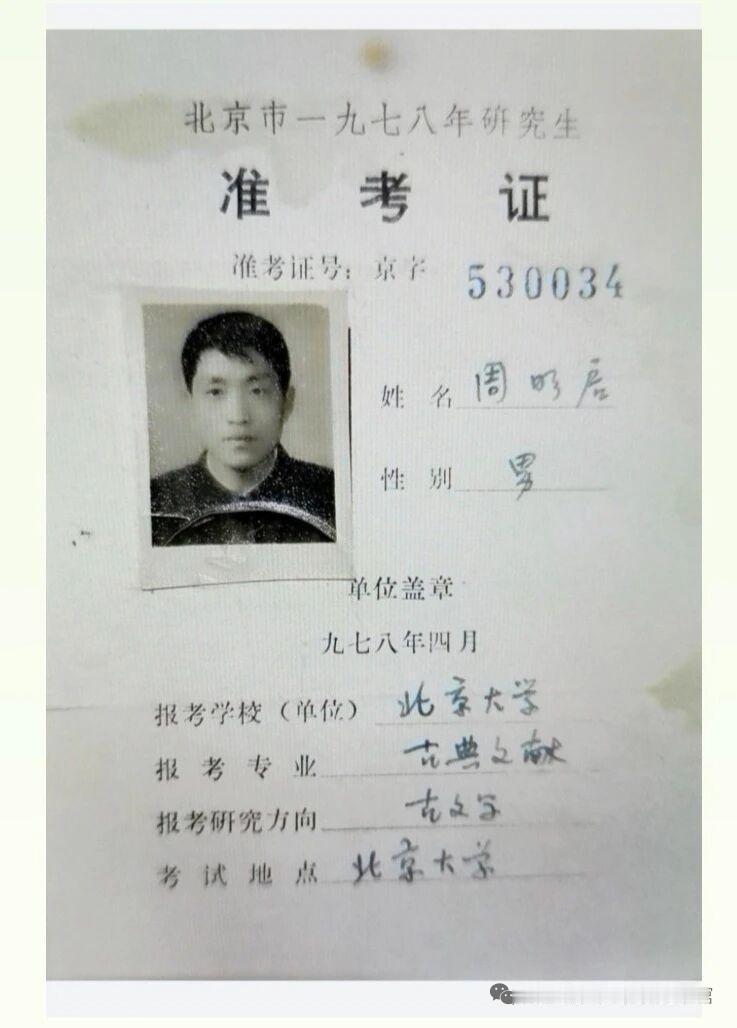 北京市一九七八年研究生
准考证
准考证号：京字 530034
姓名 周
性别 男
单位盖章
九七八年四月
报考学校（单位） 北京大学
报考专业 古典文献
报考研究方向 古文字
考试地点 北京大学